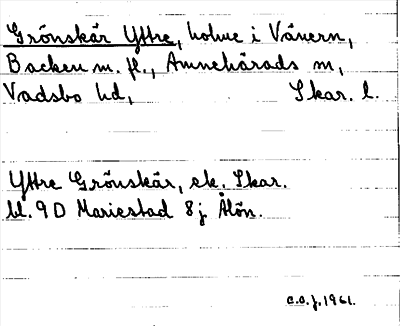 Grönskär Yttre, holme i Vänern,
Backen m. fl., Amnehärads sn,
Vadsbo hd, Skar. l.
Yttre Grönskär, ek. Skar.
bl. 9D Mariestad 8j Ålön.
c.o.j. 1961.